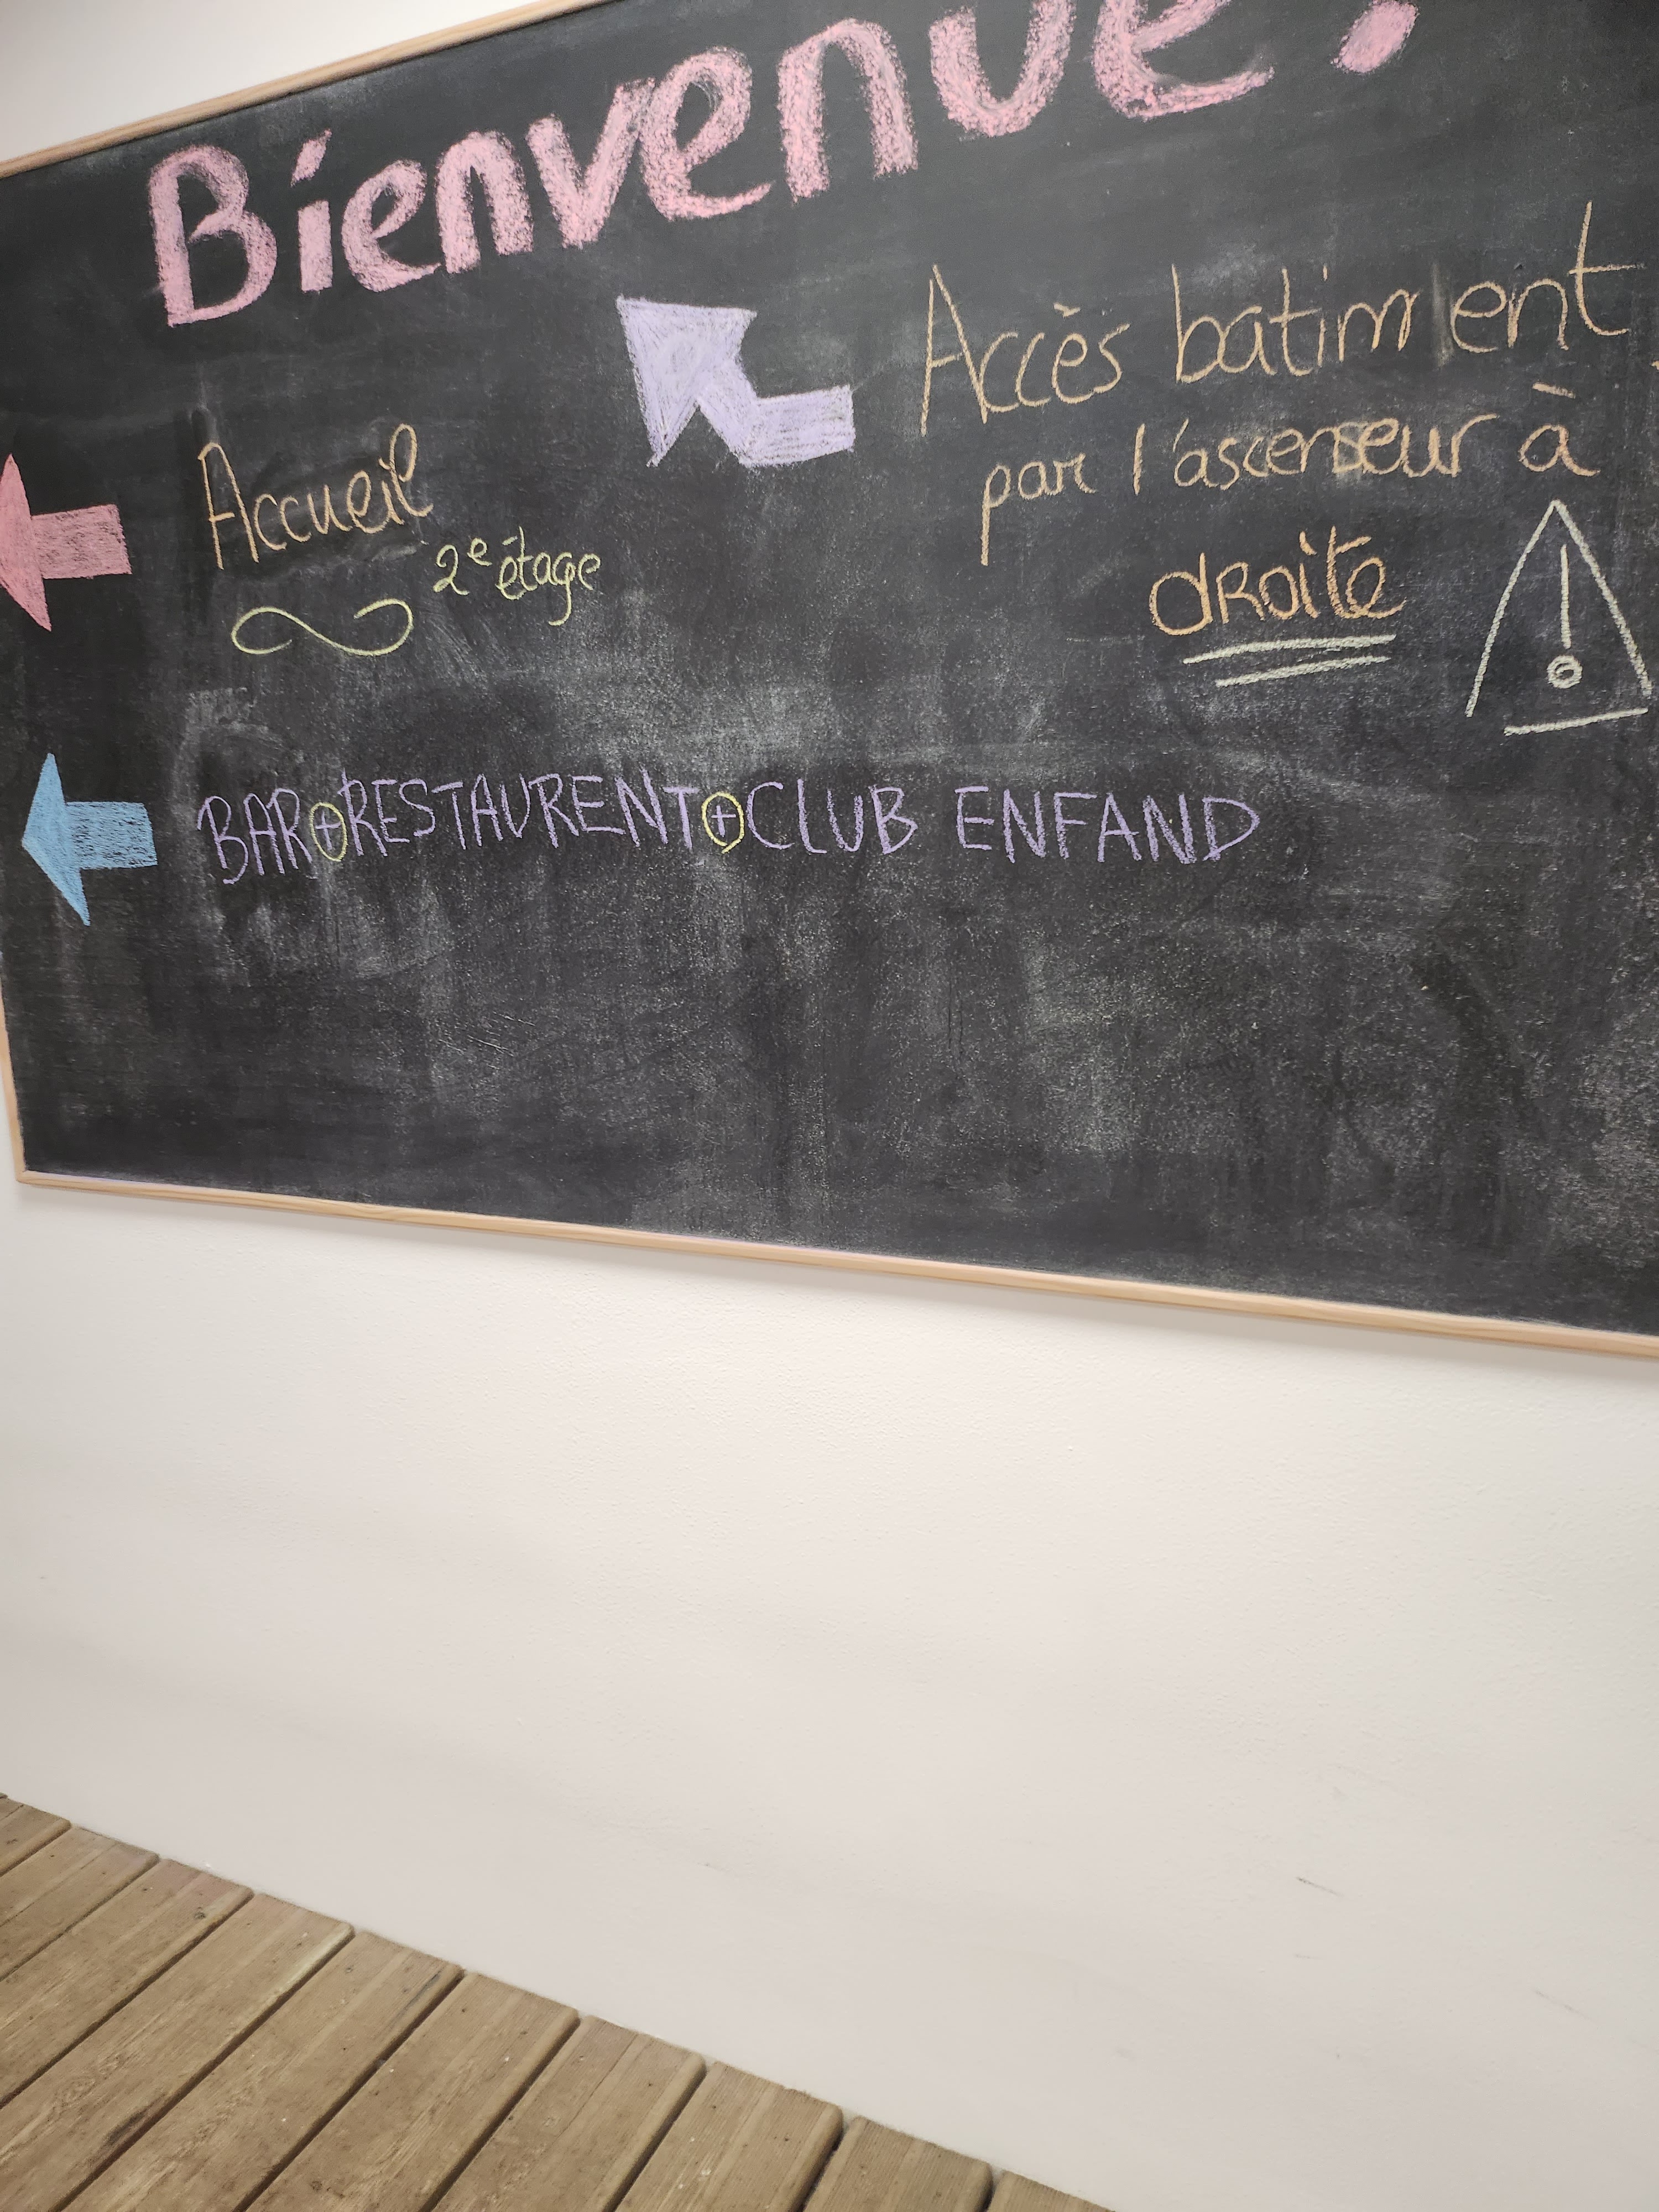 Bienvenue !
Accès batiment
par l'ascenseur à
droite
Accueil
2e étage
BAR+RESTAURENT+CLUB ENFAND